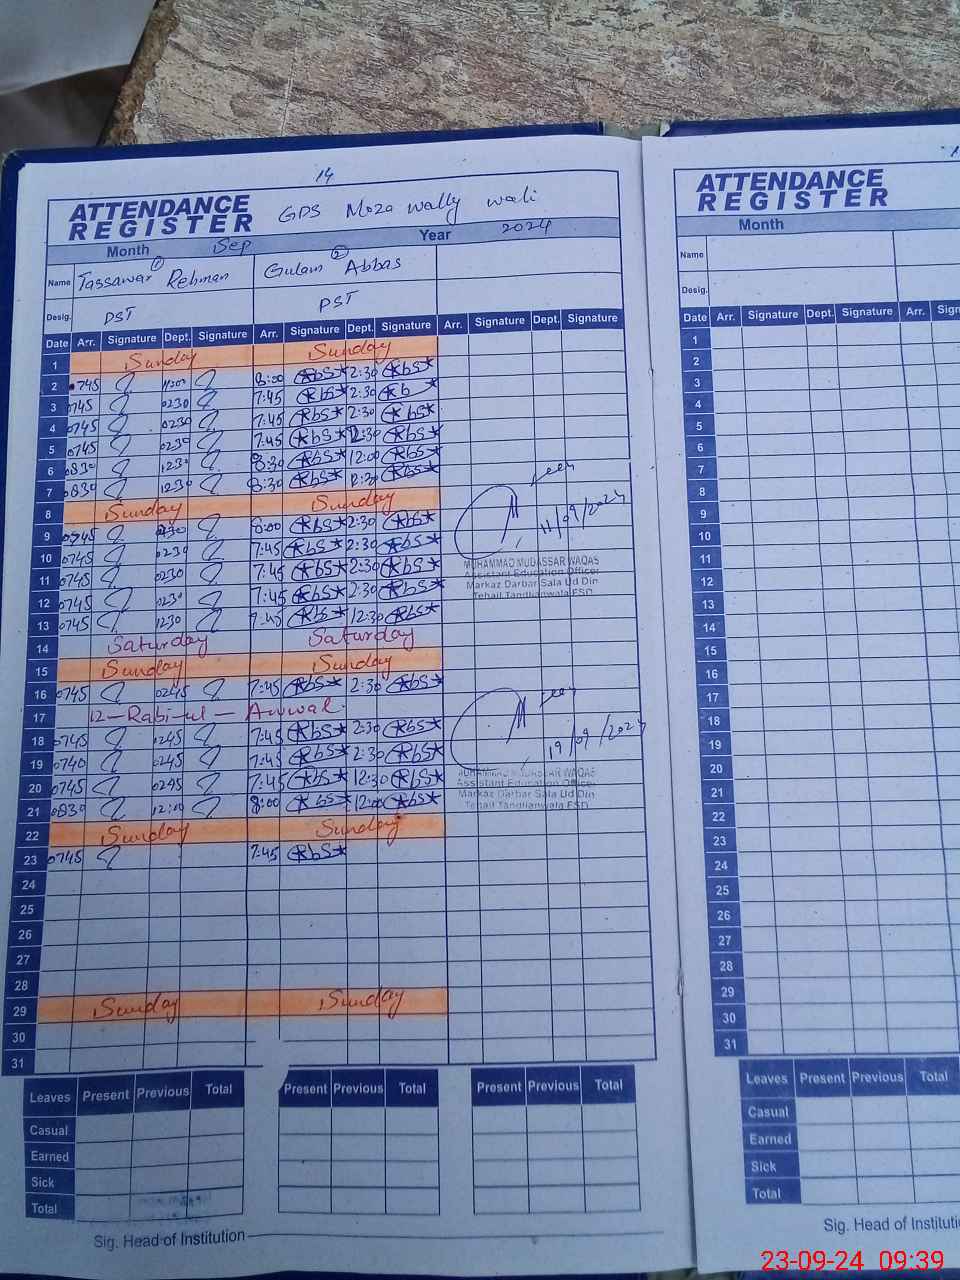 14
ATTENDANCE REGISTER GPS Moza wally wali
Month Sep Year 2024
Name Tassawar Rehman ① Gulam Abbas ②
Desig. PST PST
Date Arr. Signature Dept. Signature Arr. Signature Dept. Signature Arr. Signature Dept. Signature
1 Sunday Sunday
2 0745 8:00 2:30
3 0745 0230 7:45 2:30
4 0745 0230 7:45 2:30
5 0745 0230 7:45 2:30
6 0830 1230 8:30 12:00
7 0830 1230 8:30 12:30
8 Sunday Sunday
9 0745 0230 8:00 2:30
10 0745 0230 7:45 2:30
11 0745 0230 7:45 2:30
12 0745 0230 7:45 2:30
13 0745 1230 7:45 12:30
14 Saturday Saturday
15 Sunday Sunday
16 0745 0245 7:45 2:30
17 12-Rabi-ul-Awwal
18 0745 0245 7:45 2:30
19 0740 0245 7:45 2:30
20 0745 0245 7:45 12:30
21 0830 12:00 8:00 12:00
22 Sunday Sunday
23 0745 7:45
24
25
26
27
28
29 Sunday Sunday
30
31
11/09/2024
MUHAMMAD MUDASSAR WAQAS
Assistant Education Officer
Markaz Darbar Sala Ud Din
Tehsil Tandlianwala FSD
19/09/2024
MUHAMMAD MUDASSAR WAQAS
Assistant Education Officer
Markaz Darbar Sala Ud Din
Tehsil Tandlianwala FSD
Leaves Present Previous Total Present Previous Total Present Previous Total
Casual
Earned
Sick
Total
Sig. Head of Institution
ATTENDANCE REGISTER
Month
Name
Desig.
Date Arr. Signature Dept. Signature Arr.
1
2
3
4
5
6
7
8
9
10
11
12
13
14
15
16
17
18
19
20
21
22
23
24
25
26
27
28
29
30
31
Leaves Present Previous Total
Casual
Earned
Sick
Total
Sig. Head of
23-09-24 09:39